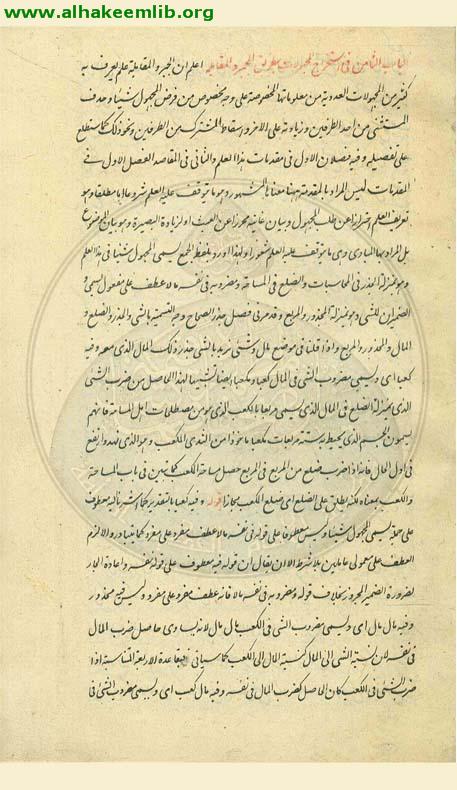 www.alhakeemlib.org
الباب الثامن فى استخراج المجهولات بطريق الجبر والمقابلة اعلم ان الجبر والمقابلة علم يعرف به
كثير من المجهولات العددية من معلوماتها المخصوصة على وجه مخصوص من فرض المجهول شيئا وحذف
المستثنى من احد الطرفين وزيادته على الاخر واسقاط المشترك من الطرفين ونحو ذلك كما ستطلع
على تفصيله وفيه فصلان الاول فى مقدمات هذا العلم والثانى فى المقاصد الفصل الاول فى
المقدمات ليس المراد بالمقدمة ههنا معناها المشهور وهو ما توقف عليه العلم شروعا اما مطلقا وهو
تعريف العلم احترازا عن طلب المجهول وبيان غايته تحرزا عن العبث او لزيادة البصيرة وهو بيان الموضوع
بل المراد بها المبادى وهى ما يتوقف عليه العلم شعورا ولهذا اورد بلفظ الجمع يسمى المجهول شيئا فى هذا العلم
وهو بمنزلة الجذر فى المحاسبات والضلع فى المساحة ومضروبه فى نفسه مالا عطف على مفعول يسمى و
الضميران للشى وهو بمنزلة المجذور والمربع وقد مر فى فصل جذر الصحاح وجه التسمية بالشى والجذر والضلع و
المال والمجذور والمربع واذا قلنا فى موضع مال وشى نريد بالشى جذر ذلك المال الذى معه وفيه
كعبا اى ويسمى مضروب الشى فى المال كعبا ومكعبا ايضا تشبيها لهذا الحاصل من ضرب الشى
الذى بمنزلة الضلع فى المال الذى يسمى مربعا بالكعب الذى هو من مصطلحات اهل المساحة فانهم
يسمون الجسم الذى يحيط به ستة مربعات مكعبا ماخوذا من الثدى المكعب وهو الذى نهد وارتفع
فى اول الحال فانه اذا ضرب ضلع من المربع فى المربع حصل مساحة الكعب كما يتبين فى باب المساحة
والكعب بمعناه لكنه يطلق على الضلع اى ضلع الكعب مجازا قوله وفيه كعبا بالتقدير كما اشرنا اليه معطوف
على جملة يسمى المجهول شيئا وليس معطوفا على قوله فى نفسه مالا عطف مفرد على مفرد كما يتبادر والا لزم
العطف على معمولى عاملين بلا شرط الا ان يقال ان قوله فيه معطوف على قوله نفسه واعادة الجار
لضرورة الضمير المجرور بخلاف قوله ومضروبه فى نفسه مالا فانه عطف مفرد على مفرد وليس فيه محذور
وفيه مال مال اى ويسمى مضروب الشى فى الكعب مال مال لانه يساوى حاصل ضرب المال
فى نفسه لان نسبة الشى الى المال كنسبة المال الى الكعب كما سياتى فبقاعدة الاربعة المتناسبة اذا
ضرب الشى فى الكعب كان الحاصل كضرب المال فى نفسه وفيه مال كعب اى ويسمى مضروب الشى فى